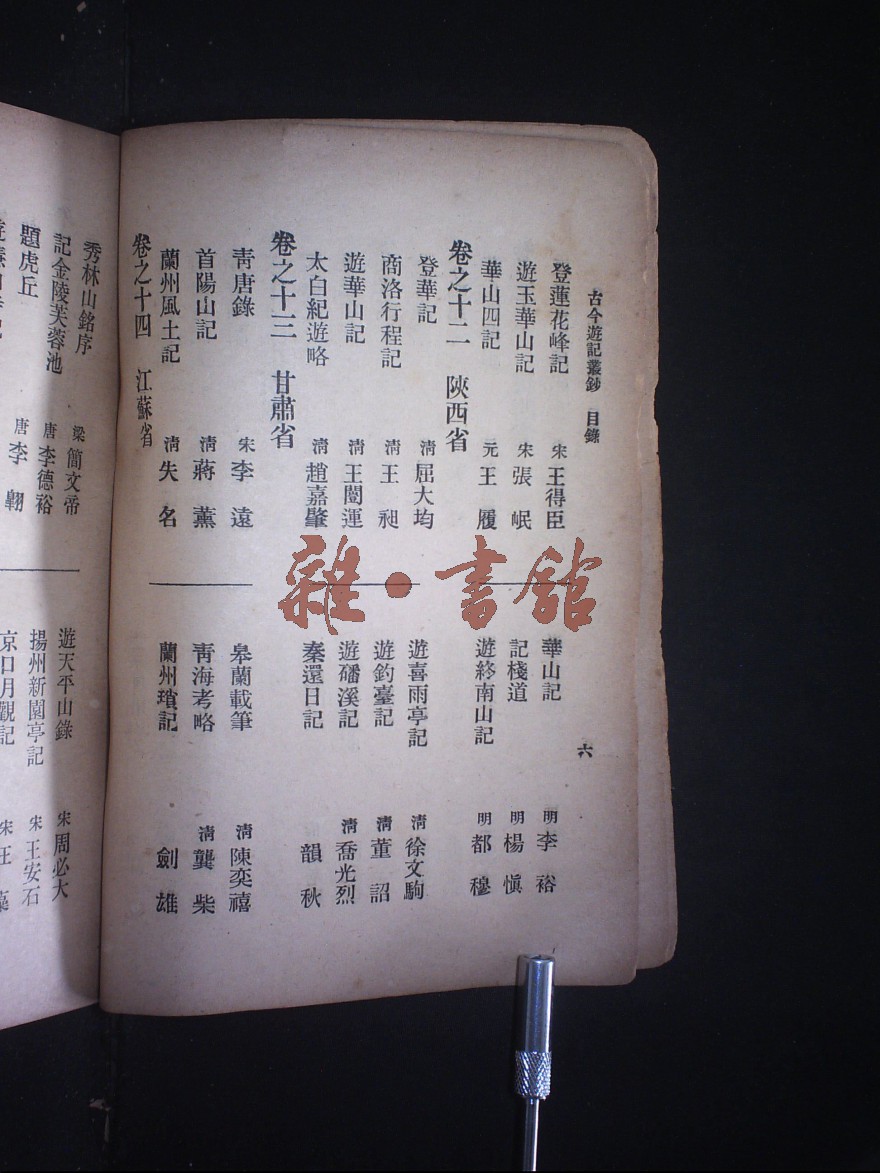 古今遊記叢鈔　目錄　六
登蓮花峰記　宋　王得臣
遊玉華山記　宋　張岷
華山四記　元　王履
華山記　明　李裕
記棧道　明　楊愼
遊終南山記　明　都穆
卷之十二　陝西省
登華記　淸　屈大均
商洛行程記　淸　王昶
遊華山記　淸　王闓運
太白紀遊略　淸　趙嘉肇
遊喜雨亭記　淸　徐文駒
遊釣臺記　淸　董詔
遊磻溪記　淸　喬光烈
秦還日記　韻秋
卷之十三　甘肅省
靑唐錄　宋　李遠
首陽山記　淸　蔣薰
蘭州風土記　淸　失名
皋蘭載筆　淸　陳奕禧
靑海考略　淸　龔柴
蘭州瑣記　劍雄
卷之十四　江蘇省
秀林山銘序　梁　簡文帝
記金陵芙蓉池　唐　李德裕
題虎丘　唐　李翺
遊天平山錄　宋　周必大
揚州新園亭記　宋　王安石
京口月觀記　宋　汪藻
雜·書館